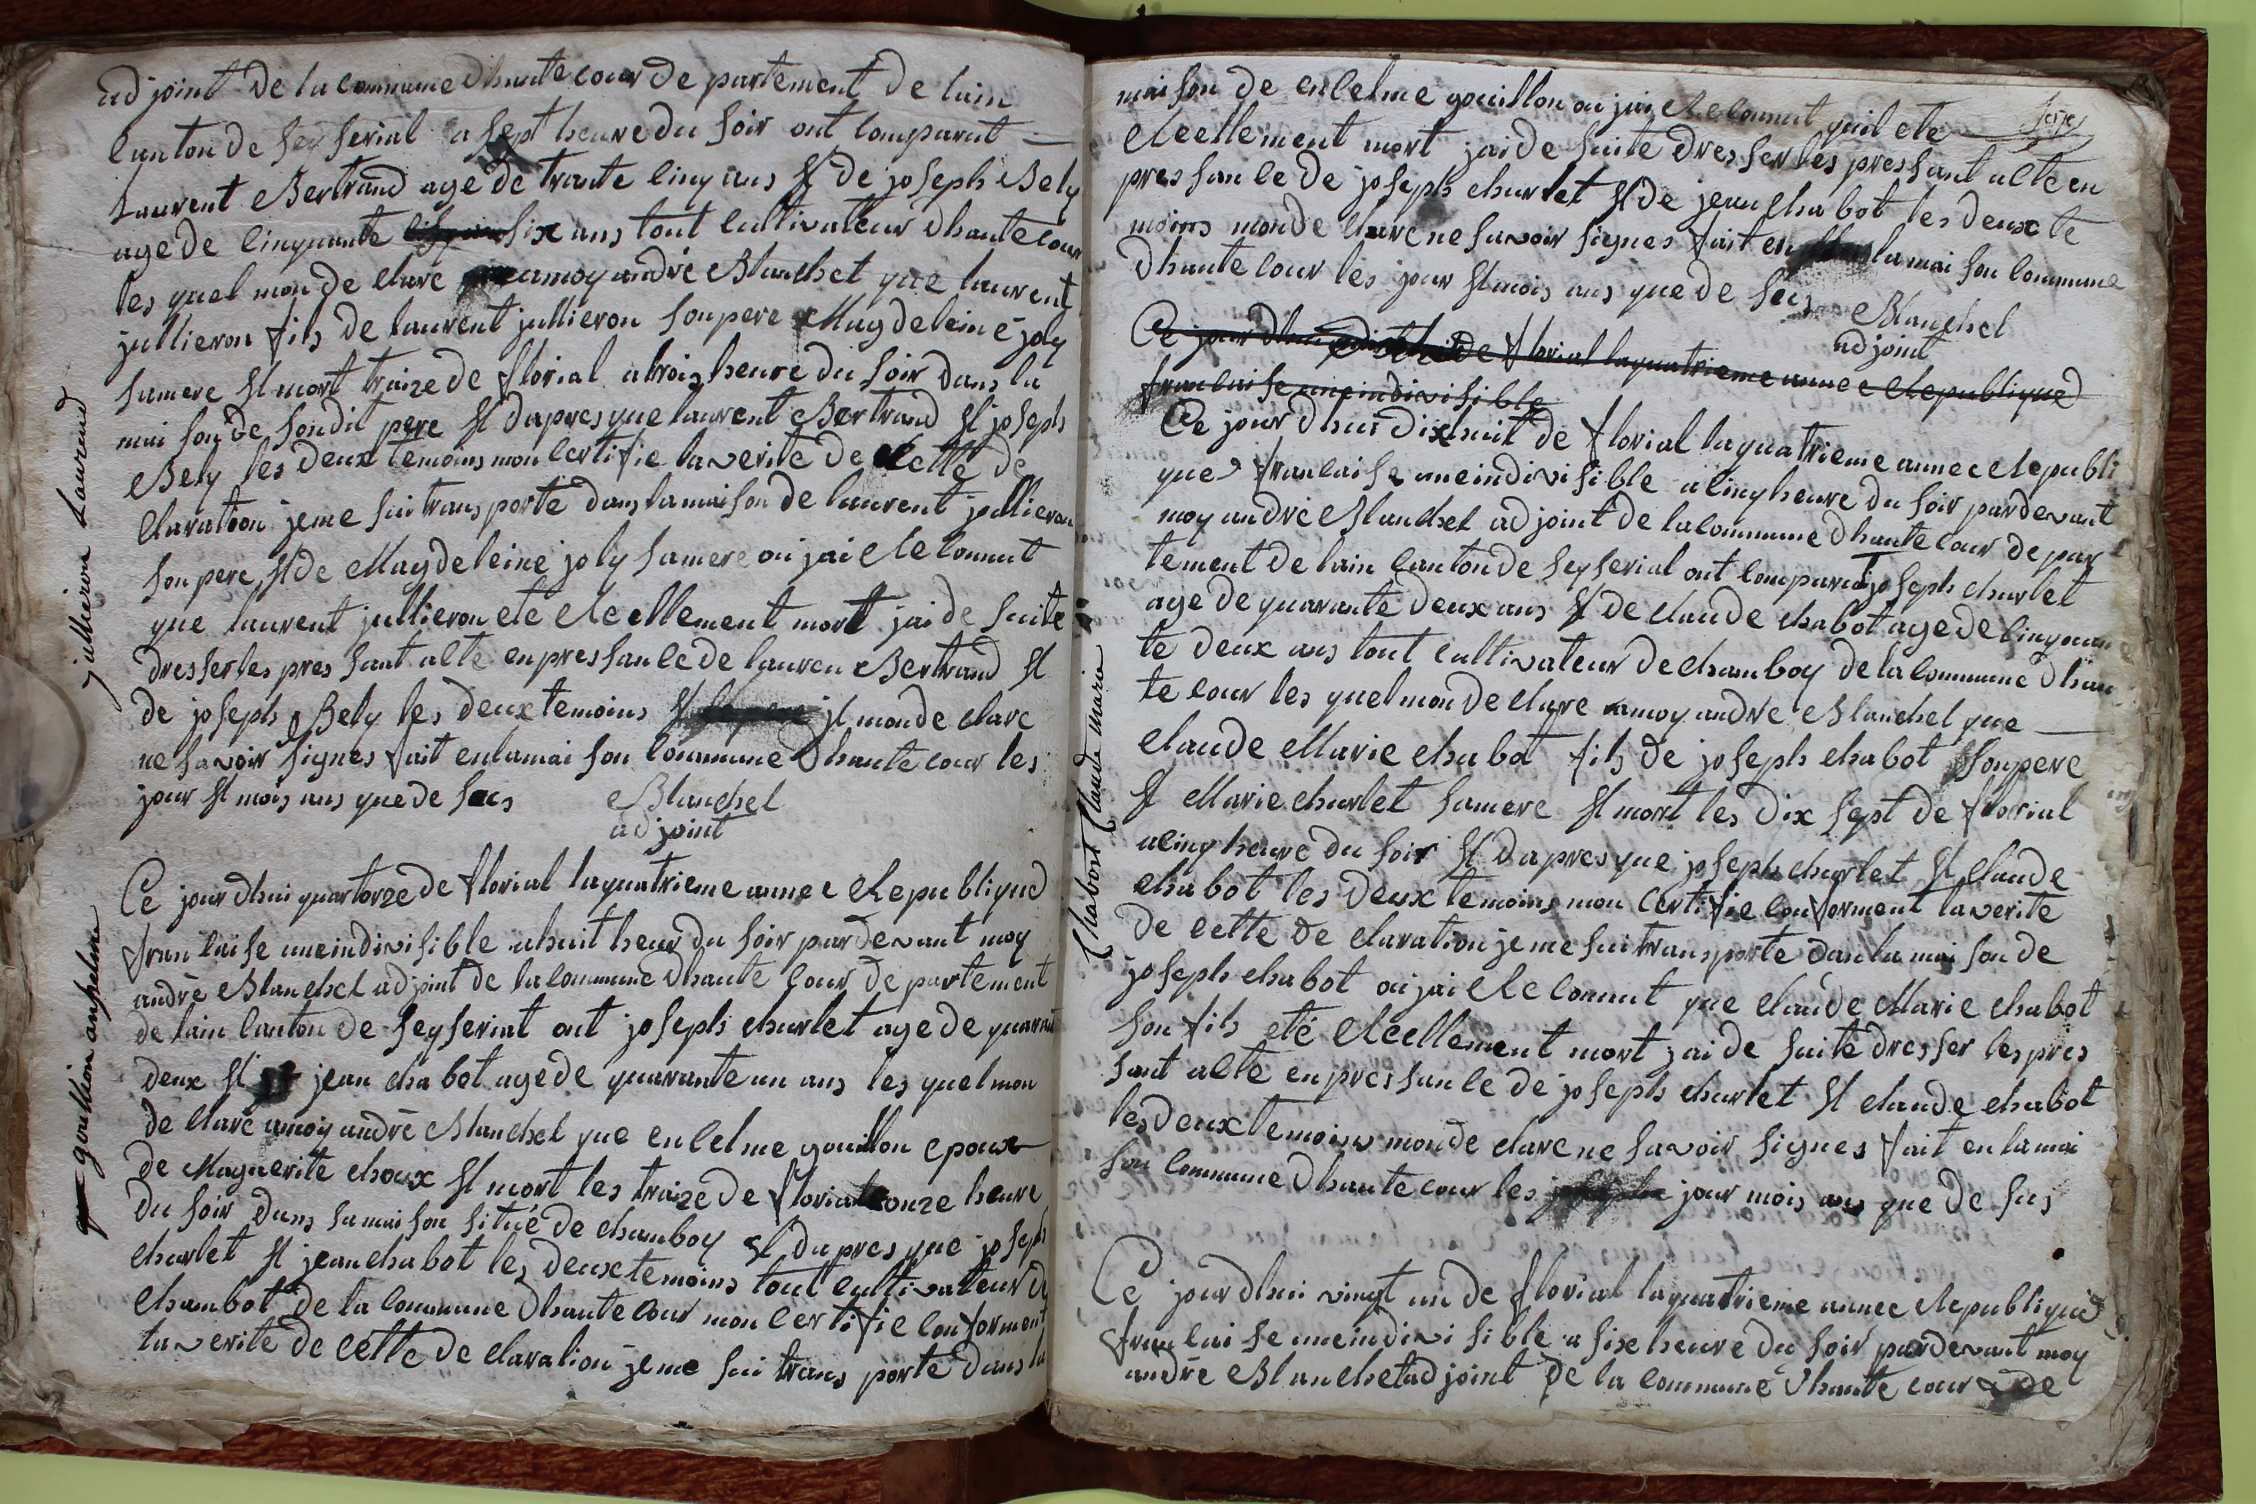 adjoint de la commune dhautecour departement de lain
Canton de seyserial a sept heure du soir ont comparut —
Laurent Bertrand age de trante cinq ans et de joseph Bely
age de cinquante six ans tout cultivatteur dhautecour
les quel mon de clare amoy andré Blanchet que laurent
jullieron fils de laurent jullieron son pere et Magdeleine joly
samere et mort traize de florial a trois heure du soir dans la
mai son de son dit pere et dapres que laurent Bertrand et joseph
Bely les deux temoins mon certifie la verite de cette de
claration jeme sui trans porté dans la maison de laurent jullieron
son pere et de Magdeleine joly samere ou jai Reconnut
que laurent jullieron eté Reellement mort jai de suite
dresser les pres sant acte en pres sance de lauren Bertrand et
de joseph Bely les deux temoins et il mon de clare
ne savoir signes fait en lamai son commune dhaute cour les
jour et mois ans que de sus
Blanchet
adjoint
jullieron Laurend
Ce jour dhui quartorze de florial la quatrieme annee Republique
francaise uneindivisible a huit heur du soir pardevant moy
andré Blanchet adjoint de la commune dhaute cour departement
de lain canton de seyseriat ont joseph churlet age de quarante
deux et jean chabot age de quarante un ans les quel mon
de claré amoy andré Blanchet que encelme gouillon epoux
de Maguerite choux et mort les traize de florial onze heure
du soir dans sa mai son situé de chamboy et dapres que joseph
churlet et jean chabot les deux temoins tout cultivateur de
chambot de la commune dhaute cour mon certifie conforment
la verite de cette de claration jeme sui trans porte dans la
gouillion anselme
maison de encelme gouillon ou jai Reconnut quil ete
Reellement mort jai de suite dresser les pressant acte en
pressan ce de joseph churlet et de jean chabot les deux te
moins mon de clare ne savoir signes fait en lamai son commune
dhaute cour les jour et mois ans que de sus
Blanchet
adjoint
Ce jour dhui dixhuit de florial la quatrieme annee Republique
francaise uneindivisible
Ce jour dhui dixhuit de florial la quatrieme annee Republi
que francaise uneindivisible a cinq heure du soir pardevant
moy andré Blanchet adjoint de la commune dhaute cour de par
tement de lain canton de seyserial ont comparut joseph churlet
age de quarante deux ans et de claude chabot age de cinquan
te deux ans tout cultivateur de chamboy de la commune dhau
te cour les quel mon de clare amoy andre Blanchet que —
Claude Marie chabot fils de joseph chabot son pere
et Marie churlet samere et mort les dix sept de florial
a cinq heure du soir et dapres que joseph churlet et claude
chabot les deux temoins mon certifie conforment la verite
de cette de claration jeme sui transporte dans la mai son de
joseph chabot ou jai Reconnut que claude Marie chabot
son fils eté Reellement mort jai de suite dresser les pres
sant acte en pres san ce de joseph churlet et claude chabot
les deux temoins mon de clare ne savoir signes fait en la mai
son commune dhaute cour les jour mois ans que de sus
Chabort Claude marie
Ce jour dhui vingt un de florial la quatrieme annee Republique
francaise uneindivi sible a sixe heure du soir pardevant moy
andré Blanchet adjoint de la commune dhaute cour de